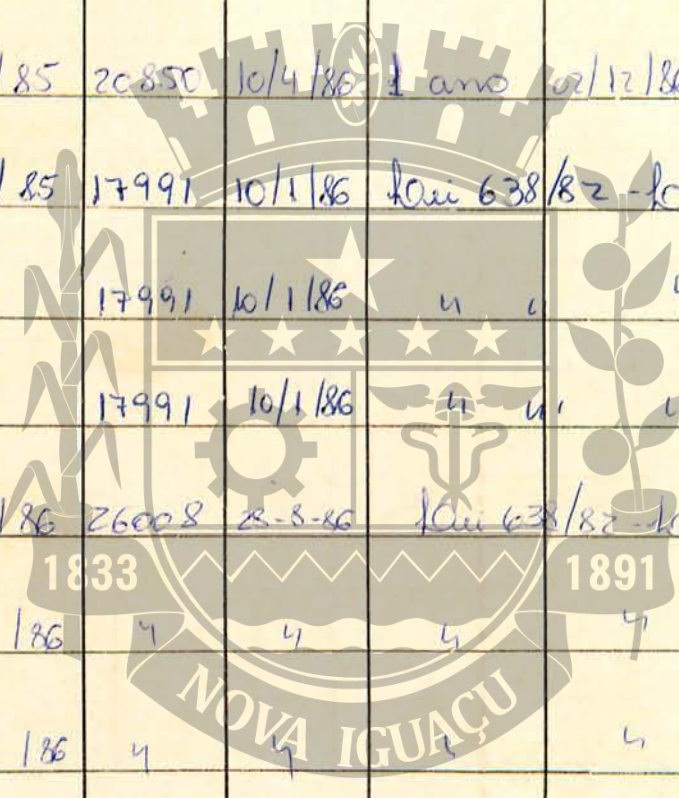 /85 20850 10/4/86 1 ano 02/12/86
/85 17991 10/1/86 Lei 638/82 -
17991 10/1/86 " " "
17991 10/1/86 " " "
/86 26008 28-8-86 Lei 638/82 -
1833 1891
/86 " " " "
NOVA IGUAÇU
/86 " " " "